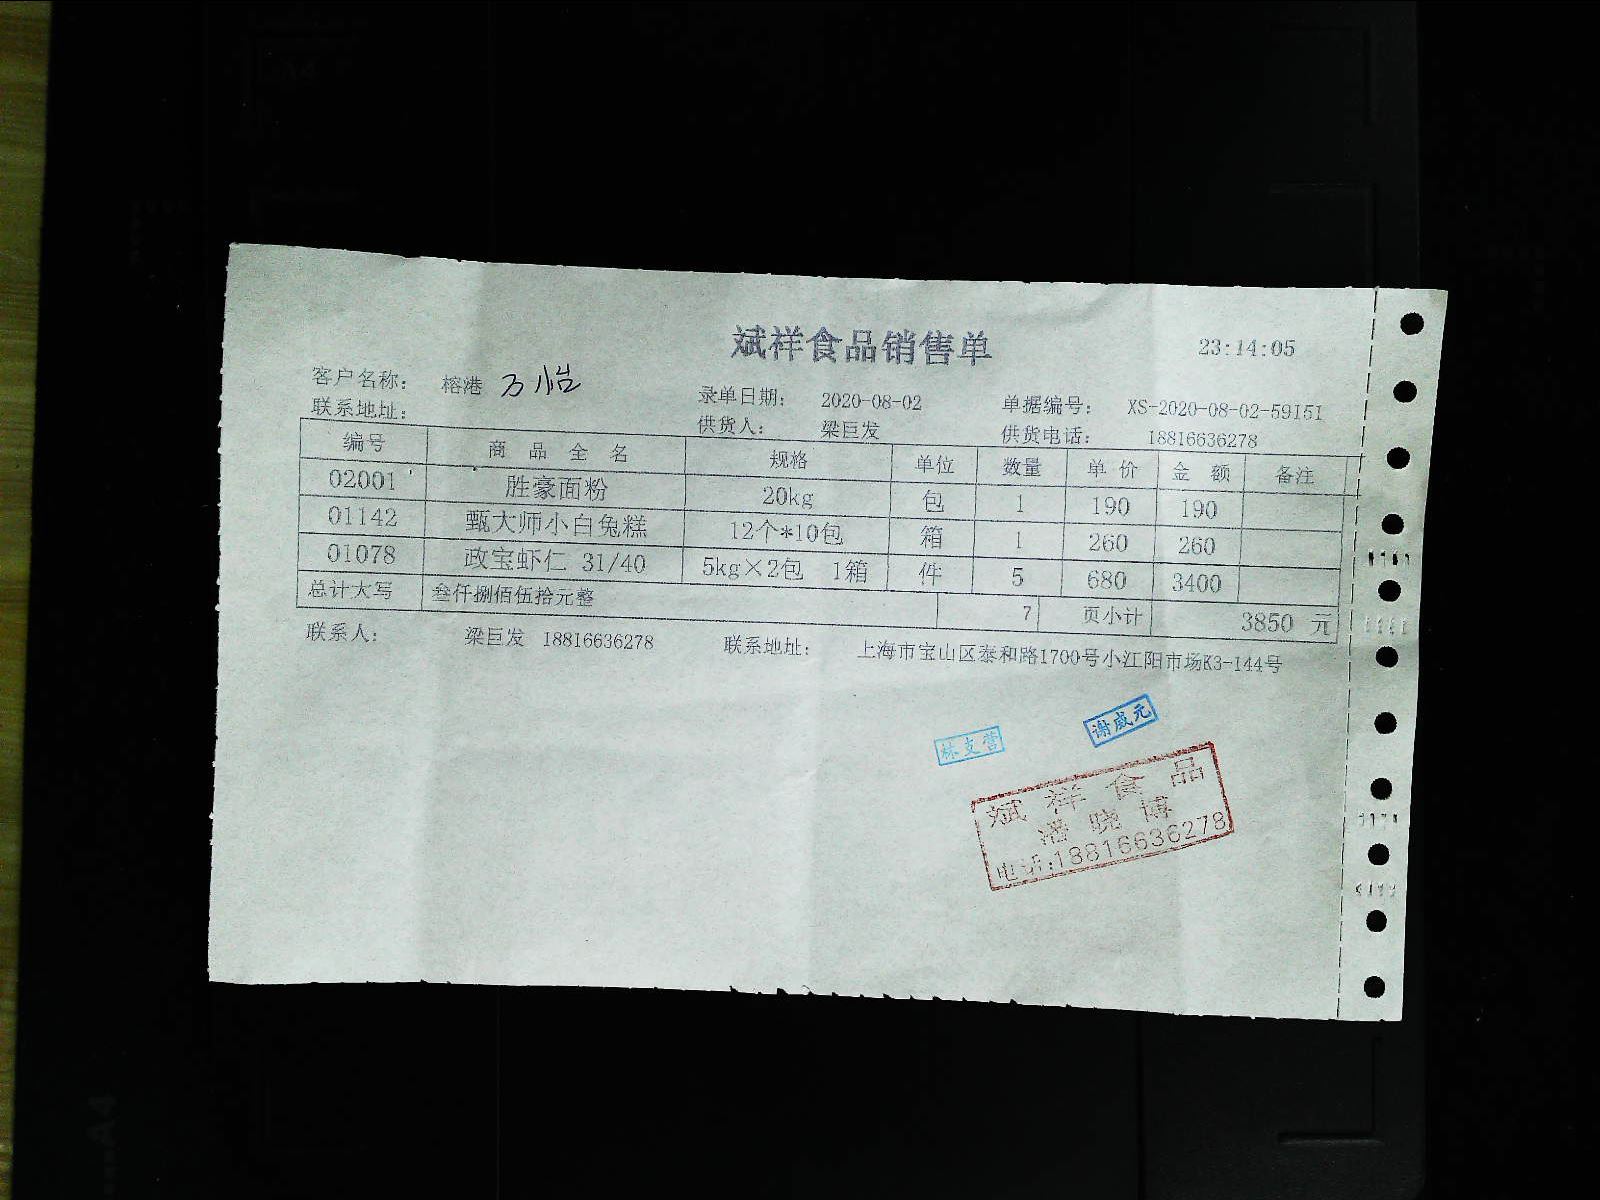 斌祥食品销售单 23:14:05
客户名称: 榕港 万怡 录单日期: 2020-08-02 单据编号: XS-2020-08-02-59151
联系地址: 供货人: 梁巨发 供货电话: 18816636278
编号 商品全名 规格 单位 数量 单价 金额 备注
02001 胜豪面粉 20kg 包 1 190 190
01142 甄大师小白兔糕 12个*10包 箱 1 260 260
01078 政宝虾仁 31/40 5kg×2包 1箱 件 5 680 3400
总计大写 叁仟捌佰伍拾元整 7 页小计 3850 元
联系人: 梁巨发 18816636278 联系地址: 上海市宝山区泰和路1700号小江阳市场K3-144号
林支营 谢威元
斌祥食品
潘晓博
电话:18816636278
A4